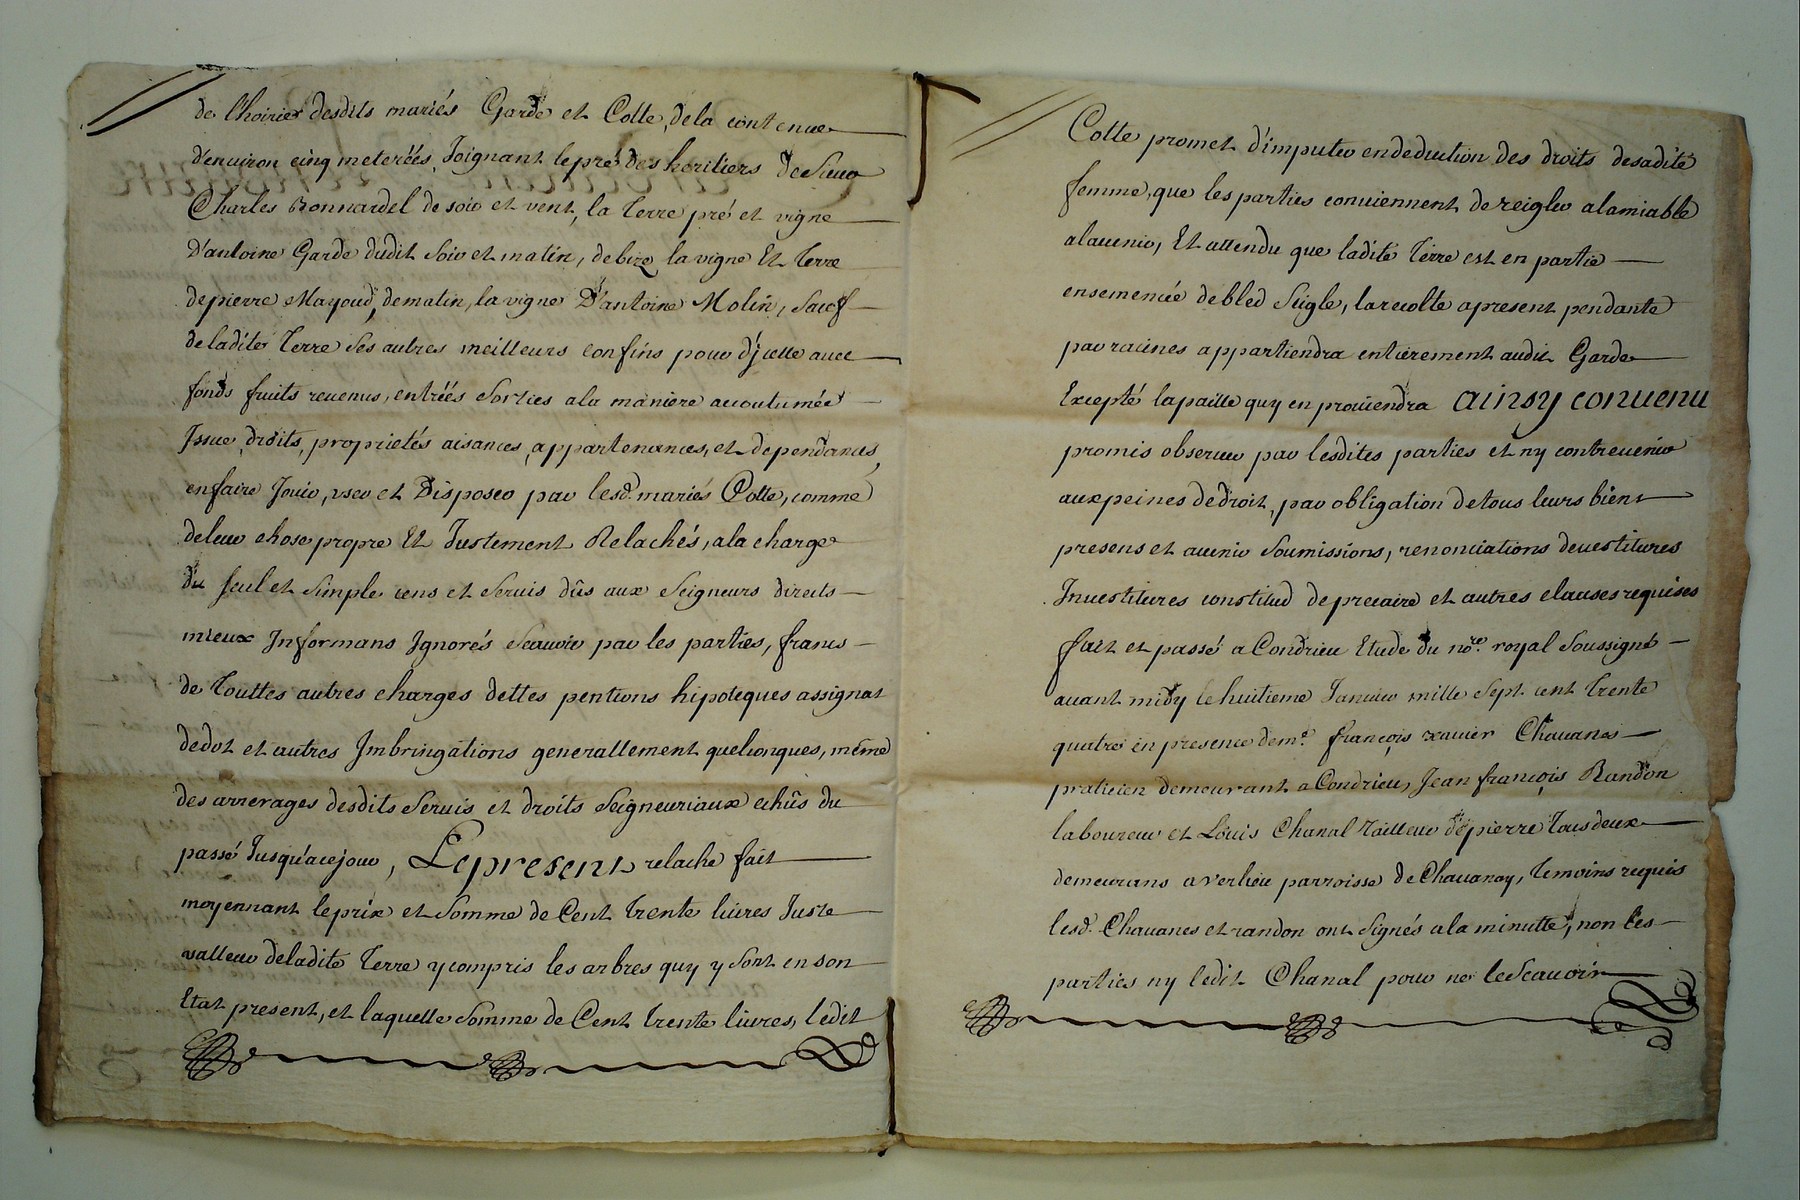 de l'hoirie desdits mariés Garde et Colle, dela contenue
d'enuiron cinq meterées, Joignant le pré des heritiers de Sieur
Charles Bonnardel de soir et vent, la Terre pré et vigne
D'antoine Garde dudit Soir et matin, de bize la vigne Et Terre
de pierre Mayoud, de matin, la vigne D'antoine Molin, Sauf
de ladite Terre Ses autres meilleurs confins pour d'jcelle auec
fonds fruits reuenus, entrées Sorties ala maniere accoutumée
Issue, droits, proprietés aisances, appartenances, et dependances,
en faire Jouir, vser et Disposer par lesd. mariés Colle, comme
de leur chose propre Et Justement Relachés, ala charge
du Seul et Simple cens et Seruis dûs aux Seigneurs directs
mieux Informans Ignorés Scauoir par les parties, francs
de Touttes autres charges dettes pentions hipoteques assignat
de dot et autres Imbringations generallement quelconques, même
des arrerages desdits Seruis et droits Seigneuriaux echûs du
passé Jusqu'ace jour, Le present relache fait
moyennant le prix et Somme de Cent Trente liures Juste
valleur deladite Terre y compris les arbres quy y Sont en son
Etat present, et laquelle Somme de Cent Trente liures, ledit
Colle promet d'imputer en deduction des droits desadite
femme, que les parties conuiennent de reigler alamiable
alauenir, Et attendu que ladite Terre est en partie
ensemencée de bled Seigle, la recolte apresent pendante
par racines appartiendra entierement audit Garde
Excepté la paille quy en prouiendra ainsy conuenu
promis obseruer par lesdites parties et ny contreuenir
aux peines de droit, par obligation de tous leurs biens
presens et auenir Soumissions, renonciations deuestitures
Inuestitures constitud de precaire et autres clauses requises
fait et passé a Condrieu Etude du nore. royal Soussigné
auant midy le huitieme Januier mille Sept cent Trente
quatre en presence de me. françois xauier Chauanes
praticien demeurant a Condrieu, Jean françois Randon
laboureur et Louis Chanal Tailleur de pierre Tous deux
demeurans a verlieu parroisse de Chauanay, Temoins requis
lesd. Chauanes et randon ont Signés ala minutte, non les
parties ny ledit Chanal pour ne le Scauoir